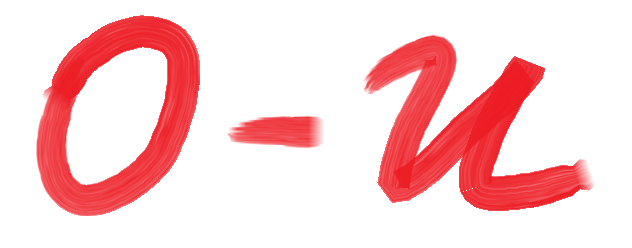 O - u